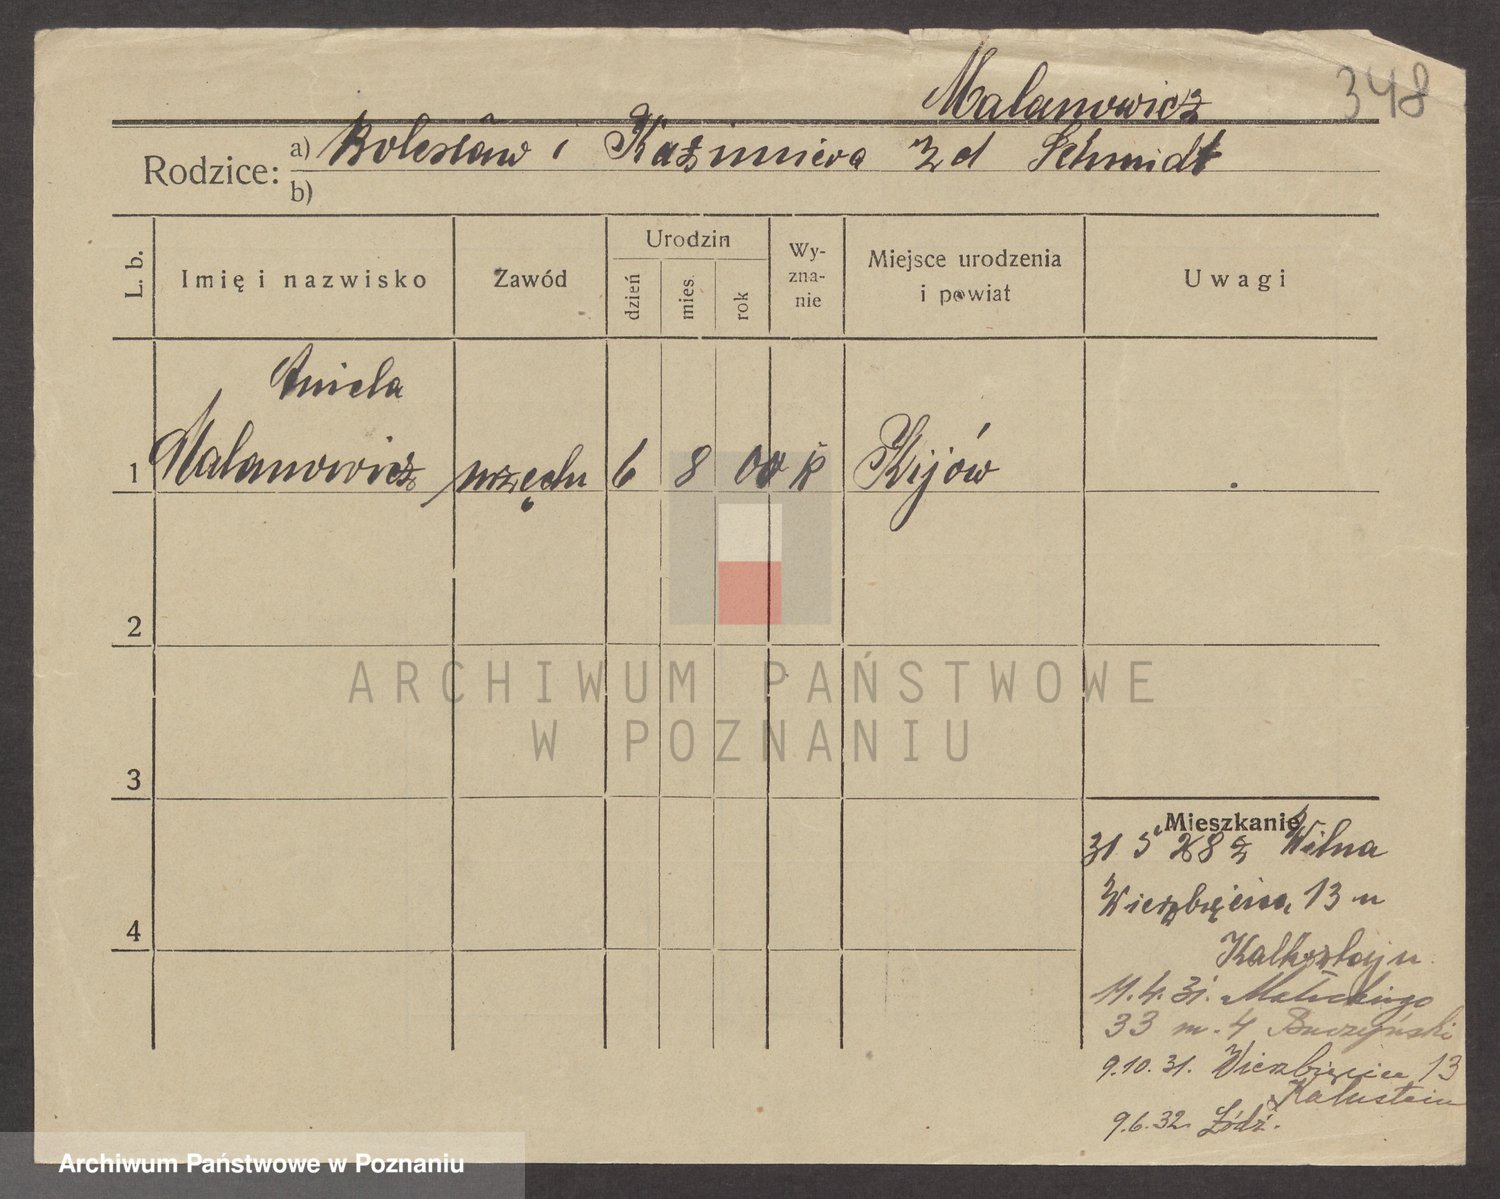 Malanowicz
348
Rodzice: a) Bolesław i Kazimiera z d Schmidt
b)
L. b.
Imię i nazwisko
Zawód
Urodzin
dzień
mies.
rok
Wy-
zna-
nie
Miejsce urodzenia
i powiat
Uwagi
Aniela
1 Malanowicz urzędn 6 8 00 k Kijów
2
3
4
Mieszkanie
31 5 28 z Wilna
Wierzbięcice 13 u
11.4.31. Matejkingo
33 m. 4 Buczyński
9.10.31. Wierzbięcice 13
9.6.32. Łódź.
ARCHIWUM PAŃSTWOWE
W POZNANIU
Archiwum Państwowe w Poznaniu